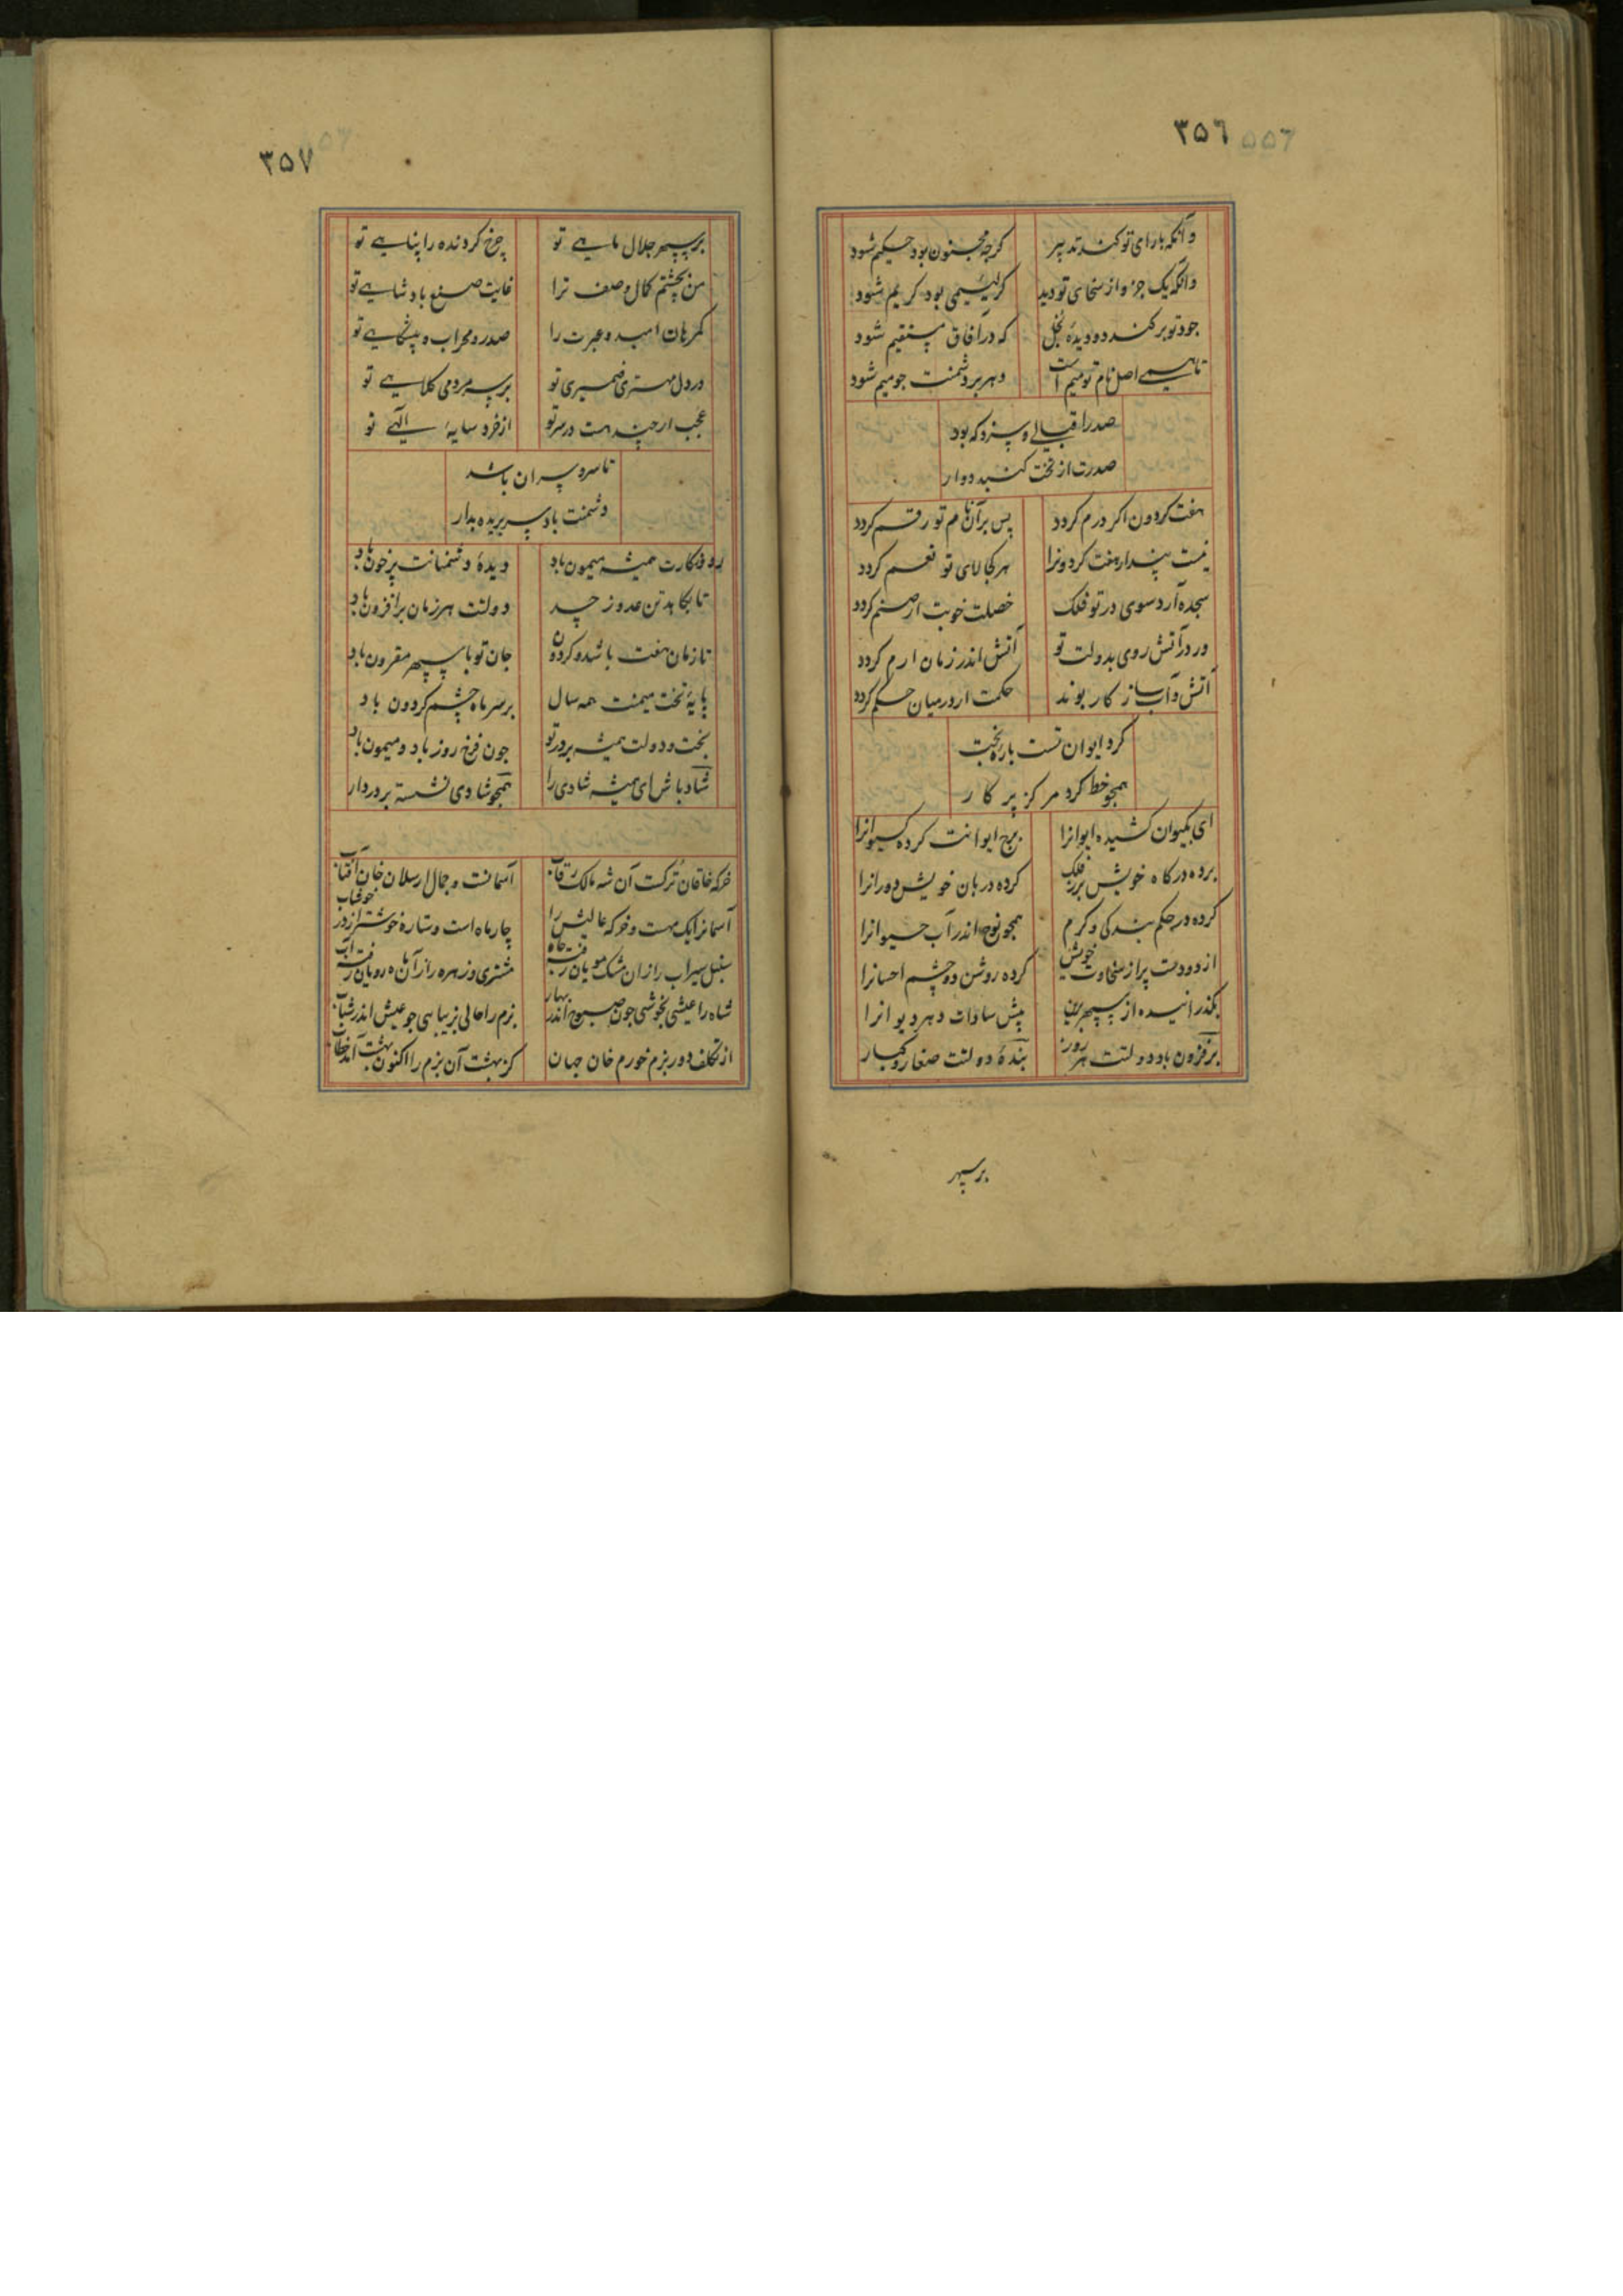 ۳۵۶ ۵۵۶
وآنکه با رای تو کند تدبیر گرچه مجنون بود حکیم شود
وانکه یک جزو از سخای تو دید گر لئیمی بود کریم شود
جود تو بر کند دو دیدهٔ بخل که در آفاق مستقیم شود
تا همی اصل نام تو میم است دهر بر دشمنت جو میم شود
صدر اقبالی و سزد که بود
صدرت از تخت کنبد دوار
هفت کردون اکر درم کردد پس بر آن نام تو رقم کردد
نیست پندار هفت کردونرا هر کجا لای تو نعم کردد
سجده آرد سوی در تو فلک خصلت خوبت ار صنم کردد
ور در آتش روی بدولت تو آتش اندر زمان ارم کردد
آتش و آب ساز کار بوند حکمت ار در میان حکم کردد
کرد ایوان تست باره بخت
همجو خط کرد مرکز پرکار
ای بکیوان کشیده ایوانرا برج ایوانت کرده کیوانرا
برده درکاه خویش بر فلک کرده دربان خویش دورانرا
کرده در حکم بندکی و کرم همجو نوح اندر آب حیوانرا
از دو دست پر از سخاوت خویش کرده روشن دو چشم احسانرا
بکذرانیده از سپهر برین پیش سادات دهر دیوانرا
بر فزون باد دولتت هر روز بندهٔ دولتت صغار و کبار
بر سپهر
۳۵۷
بر سپهر جلال ماهی تو چرخ کردنده را پناهی تو
من بچشم کمال وصف ترا غایت صنع پادشاهی تو
کمرهان امید و عبرت را صدر و محراب و پیشگاهی تو
در دل مهتری ضمیری تو بر سر مردمی کلاهی تو
عجب ار چند هست در سر تو از خرد سایهٔ الهی تو
تا سرو سران باشد
دشمنت باد سر بریده بدار
روزکارت همیشه میمون باد دیدهٔ دشمنانت پرخون باد
تا بکاهد تن عدو ز حسد دولتت هر زمان بر افزون باد
تا زمان هفت باشد و کردون جان تو با سپهر مقرون باد
پایهٔ تخت میمنت همه سال بر سر ماه چشم کردون باد
بخت و دولت همیشه بر در تو جون فرخ روز باد و میمون باد
شاد باش ای همیشه شادی را همجو شادی نشسته بر در دار
خرکه خاقان ترکست آن شه مالک رقاب آسمانست و جمال ارسلان خان آفتاب
آسمانرا یک مهست و خرکه عالیش را چار ماه است و ستاره خوشتر از در خوشاب
سنبل سیراب را زان مشک مویان رفت جاه مشتری و زهره را زان ماه رویان رفت آب
شاه را عیشی بخوشی جون صبوح اندر بهار بزم را حالی بزیبایی جو عیش اندر شباب
از تکلف دور بزم خورم خان جهان کز بهشت آن بزم را اکنون بهشت آمد خطاب